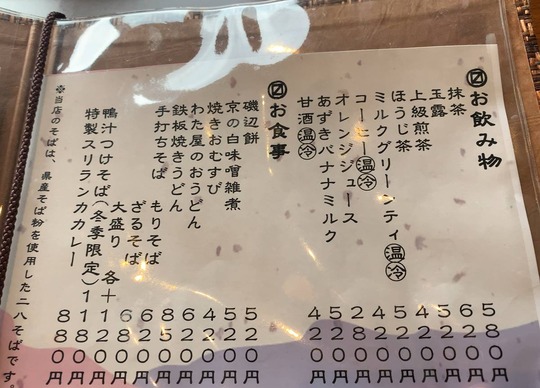 お飲み物
抹茶 580円
玉露 650円
上級煎茶 520円
ほうじ茶 420円
ミルクグリーンティ温冷 520円
コーヒー温冷 420円
オレンジジュース 280円
あずきバナナミルク 520円
甘酒温冷 420円
お食事
磯辺餅 520円
京の白味噌雑煮 520円
焼きおむすび 420円
わた屋のおうどん 620円
鉄板焼きうどん 850円
手打ちそば もりそば 620円
ざるそば 680円
大盛り 各+120円
鴨汁つけそば(冬季限定) 1180円
特製スリランカカレー 880円
※当店のそばは、県産そば粉を使用した二八そばです。